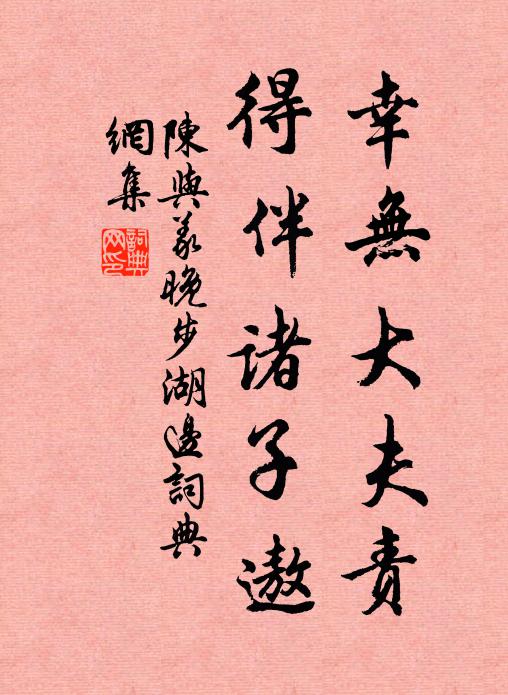 幸無大夫責
得伴諸子遨
陳與義晚步湖邊詞典
網集
詞典
网印